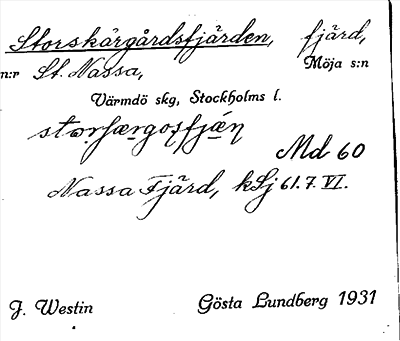 Storskärgårdsfjärden, fjärd,
n:r St. Nassa, Möja s:n
Värmdö skg, Stockholms l.
Md 60
Nassa Fjärd, kSj 61.7.VI.
J. Westin Gösta Lundberg 1931